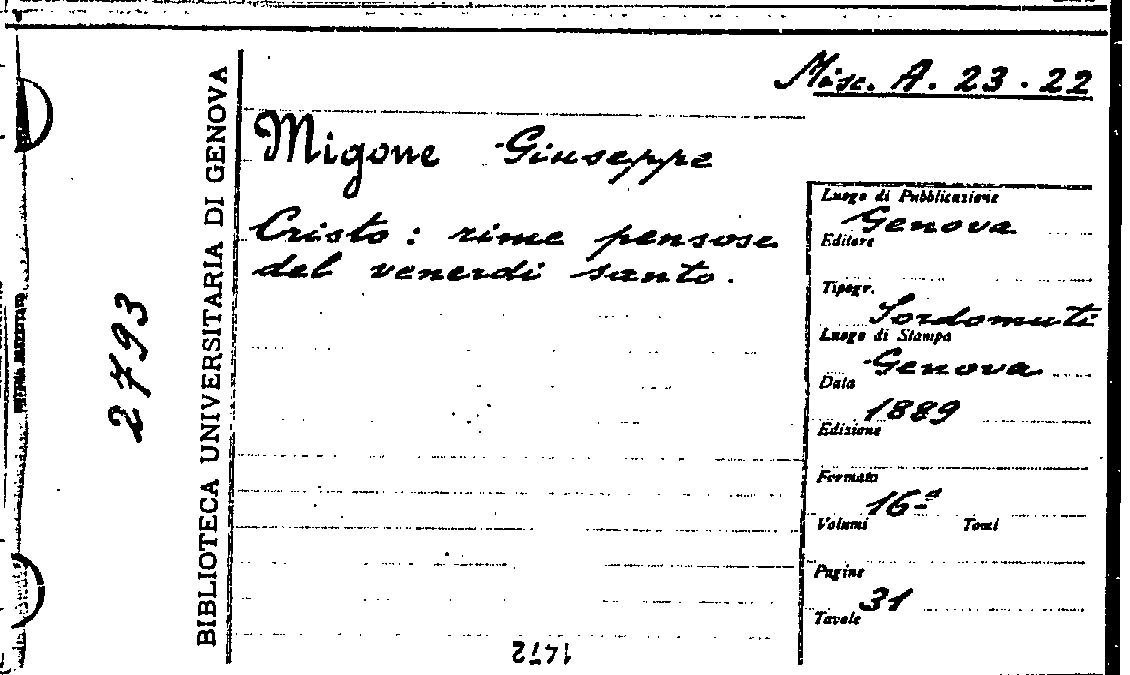 Misc. A. 23. 22
BIBLIOTECA UNIVERSITARIA DI GENOVA
2793
Migone Giuseppe
Cristo: rime pensose
del venerdì santo.
Luogo di Pubblicazione
Genova
Editore
Tipogr.
Sordomuti
Luogo di Stampa
Genova
Data
1889
Edizione
Formato
16º
Volumi Tomi
Pagine
31
Tavole
1472